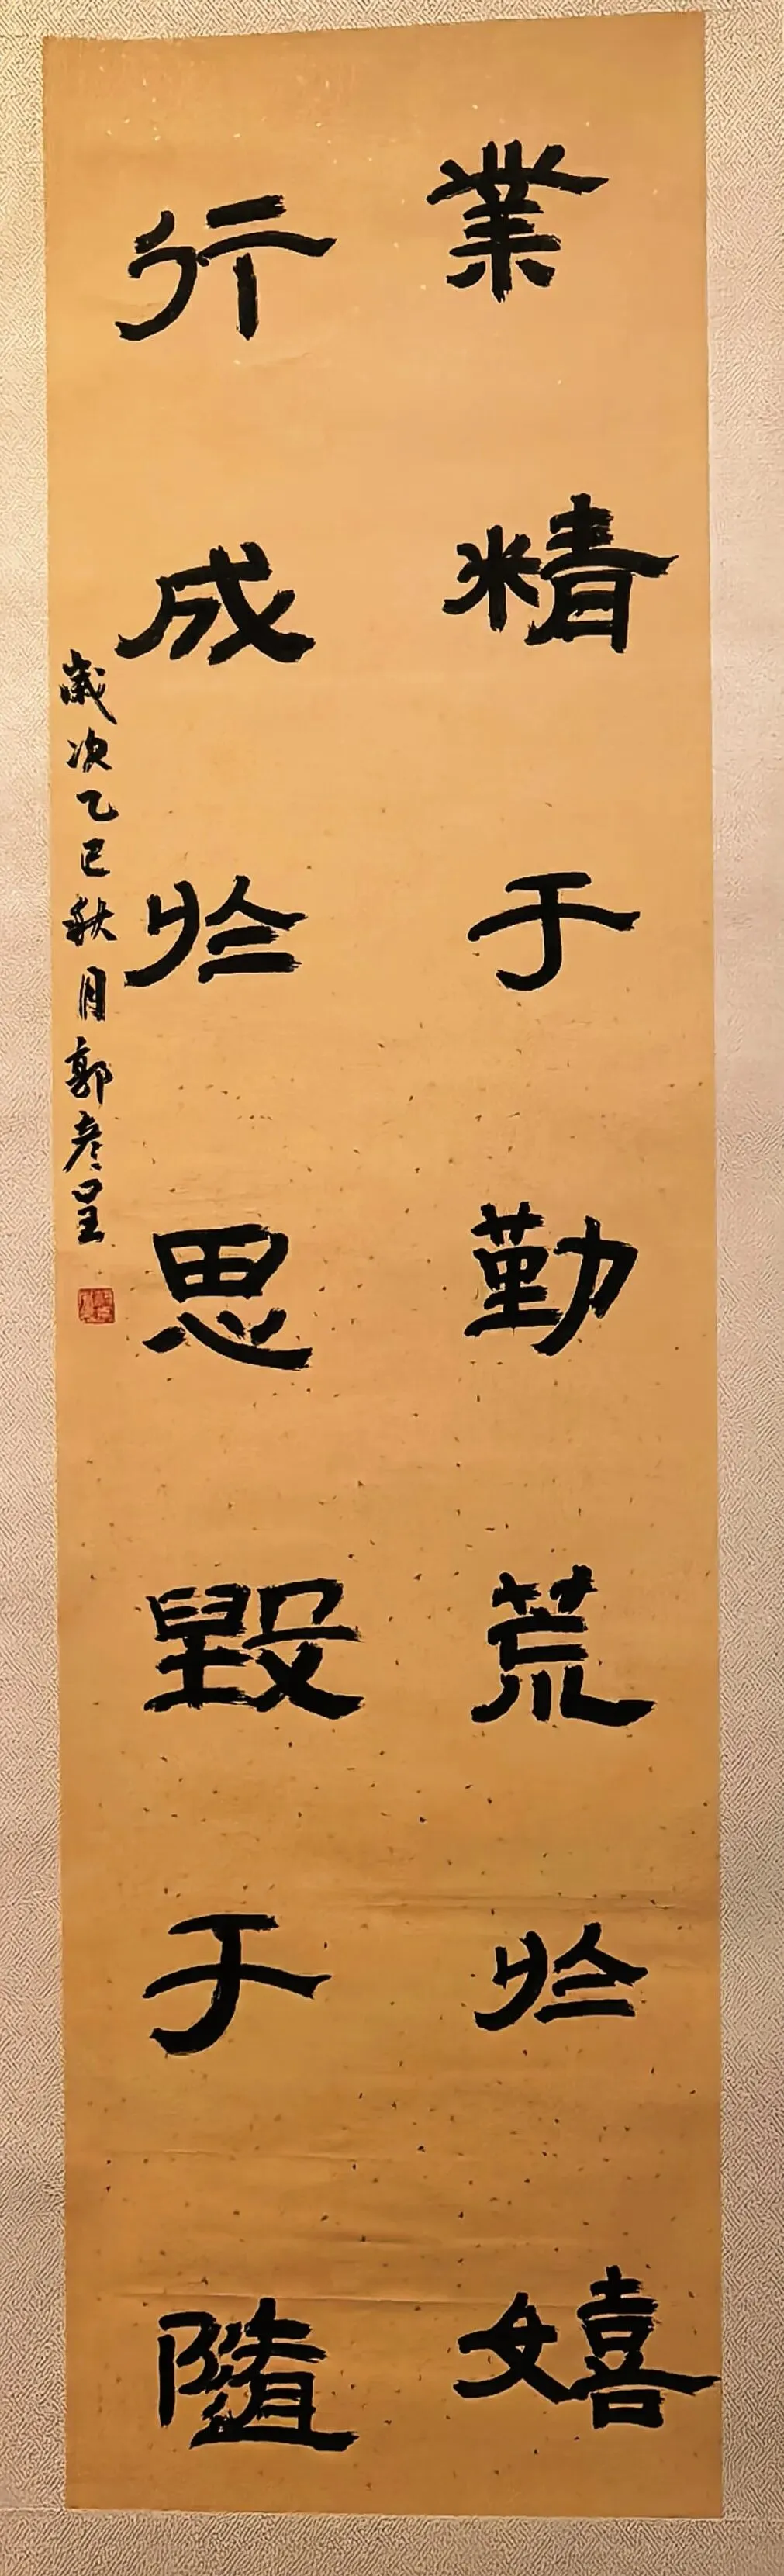 業精于勤荒於嬉
行成於思毀于隨
歲次乙巳秋月郭彦呈